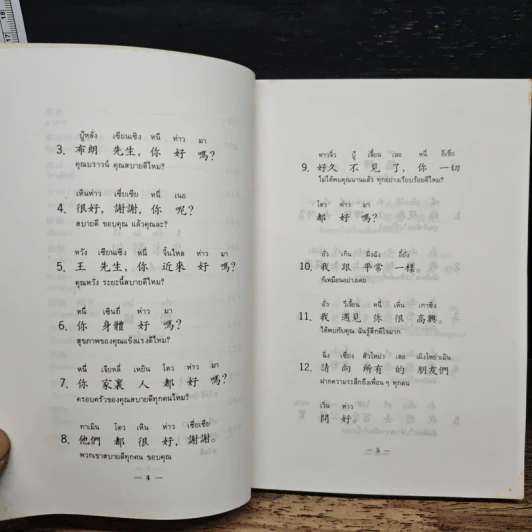 ปู้หลั่ง เซียนเซิง หนี่ ห่าว มา
3. 布朗 先生, 你 好 嗎?
คุณบราวน์ คุณสบายดีไหม?
เหินห่าว เซี่ยเซี่ย หนี่ เนอ
4. 很好, 謝謝, 你 呢?
สบายดี ขอบคุณ แล้วคุณละ?
หวัง เซียนเซิง หนี่ จิ้นไหล ห่าว มา
5. 王 先生, 你 近來 好 嗎?
คุณหวัง ระยะนี้สบายดีไหม?
หนี่ เซินถี่ ห่าว มา
6. 你 身體 好 嗎?
สุขภาพของคุณแข็งแรงดีไหม?
หนี่ เจียหลี่ เหยิน โตว ห่าว มา
7. 你 家裏 人 都 好 嗎?
ครอบครัวของคุณสบายดีทุกคนไหม?
ทาเมิน โตว เหิน ห่าว เซี่ยเซี่ย
8. 他們 都 很 好, 謝謝。
พวกเขาสบายดีทุกคน ขอบคุณ
— 4 —
ห่าวจิ่ว ปู๋ เจี้ยน เลอ หนี่ อี๋เชี่ย
9. 好久 不 見 了, 你 一切
ไม่ได้พบคุณนานแล้ว ทุกอย่างเรียบร้อยดีไหม?
โตว ห่าว มา
都 好 嗎?
อั่ว เกิน ผิงฉัง อี๋ยั่ง
10. 我 跟 平常 一樣。
ก็เหมือนอย่างเคย
อั่ว วี่เจี้ยน หนี่ เหิ่น เกาซิ่ง
11. 我 遇見 你 很 高興。
ได้พบกับคุณ ฉันรู้สึกดีใจมาก
ฉิ่ง เซี่ยง สัวโหย่ว เตอ เผิงโหย่วเมิน
12. 請 向 所有 的 朋友們
ฝากความระลึกถึงเพื่อน ๆ ทุกคน
เวิ่น ห่าว
問 好。